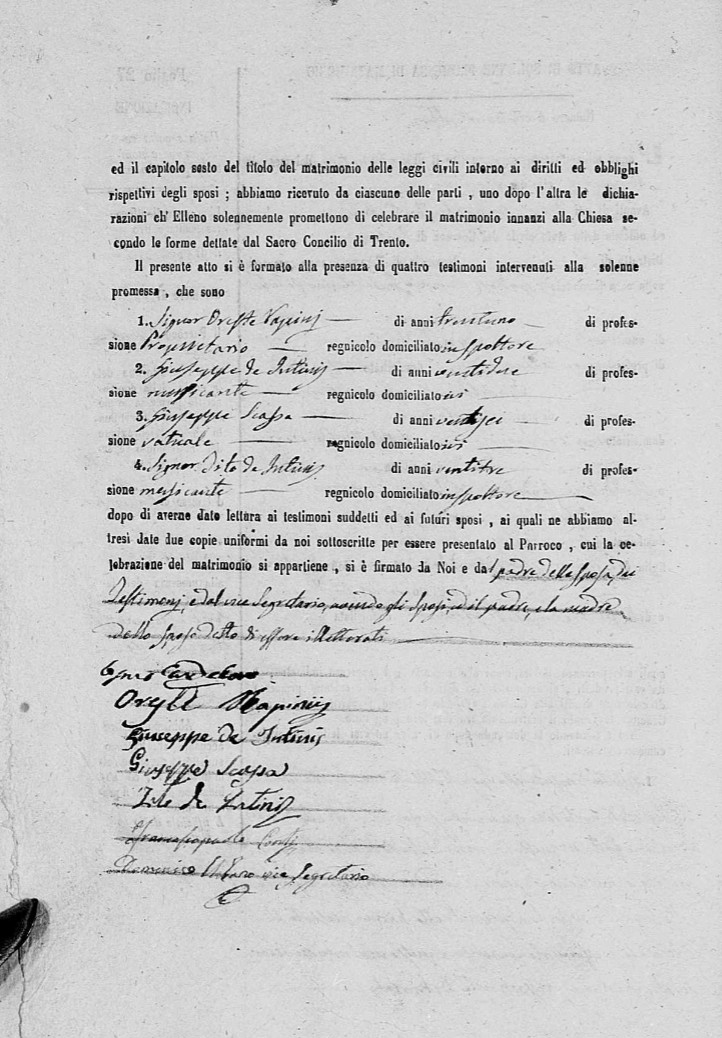 ed il capitolo sesto del titolo del matrimonio delle leggi civili intorno ai diritti ed obblighi
rispettivi degli sposi ; abbiamo ricevuto da ciascuno delle parti , uno dopo l'altra le dichia-
razioni ch' Elleno solennemente promettono di celebrare il matrimonio innanzi alla Chiesa se-
condo le forme dettate dal Sacro Concilio di Trento.
Il presente atto si è formato alla presenza di quattro testimoni intervenuti alla solenne
promessa , che sono
1. Signor Oreste di anni trentuno di profes-
sione Proprietario regnicolo domiciliato
2. Giuseppe de Intinis di anni ventidue di profes-
sione regnicolo domiciliato ivi
3. Giuseppe Scassa di anni ventisei di profes-
sione vatuale regnicolo domiciliato ivi
4. Signor Tito de Intinis di anni ventitre di profes-
sione regnicolo domiciliato
dopo di averne dato lettura ai testimoni suddetti ed ai futuri sposi , ai quali ne abbiamo al-
tresì date due copie uniformi da noi sottoscritte per essere presentato al Parroco , cui la ce-
lebrazione del matrimonio si appartiene , si è firmato da Noi e dal padre della sposa, dai
Testimonj, e dal vice Segretario, avendo gli sposi, ed il padre, e la madre
dello sposo detto di essere illetterati
Giuseppe de Intinis
Giuseppe Scassa
Tito de Intinis
Domenico vice Segretario